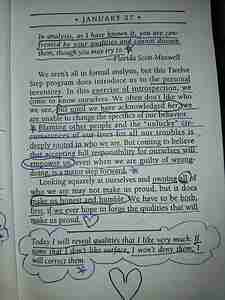 • JANUARY 27 •
In analysis, as I have known it, you are con-
fronted by your qualities and cannot disown
them, though you may try to.
—Florida Scott-Maxwell
We weren't all in formal analysis, but this Twelve
Step program does introduce us to the personal
inventory. In this exercise of introspection, we
come to know ourselves. We often don't like who
we see, but until we have acknowledged her we
are unable to change the specifics of our behavior.
Blaming other people and the "unlucky" cir-
cumstances of our lives for all our troubles is
deeply rooted in who we are. But coming to believe
that accepting full responsibility for ourselves will
empower us even when we are guilty of wrong-
doing, is a major step forward.
Looking squarely at ourselves and owning all of
who we are may not make us proud, but it does
make us honest and humble. We have to be both,
first, if we ever hope to forge the qualities that will
make us proud.
Today I will reveal qualities that I like very much. If
some that I don't like surface, I won't deny them. I
will correct them.